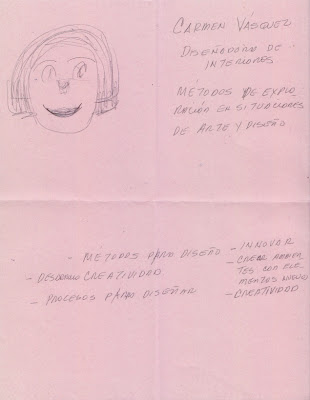 CARMEN VÁSQUEZ
DISEÑADORA DE
INTERIORES
MÉTODOS DE EXPLO
RACIÓN EN SITUACIONES
DE ARTE Y DISEÑO
- MÉTODOS PARA DISEÑO
- DESARROLLO CREATIVIDAD
- PROCESOS PARA DISEÑAR
- INNOVAR
- CREAR
TES CON ELE
MENTOS NUEVOS
- CREATIVIDAD